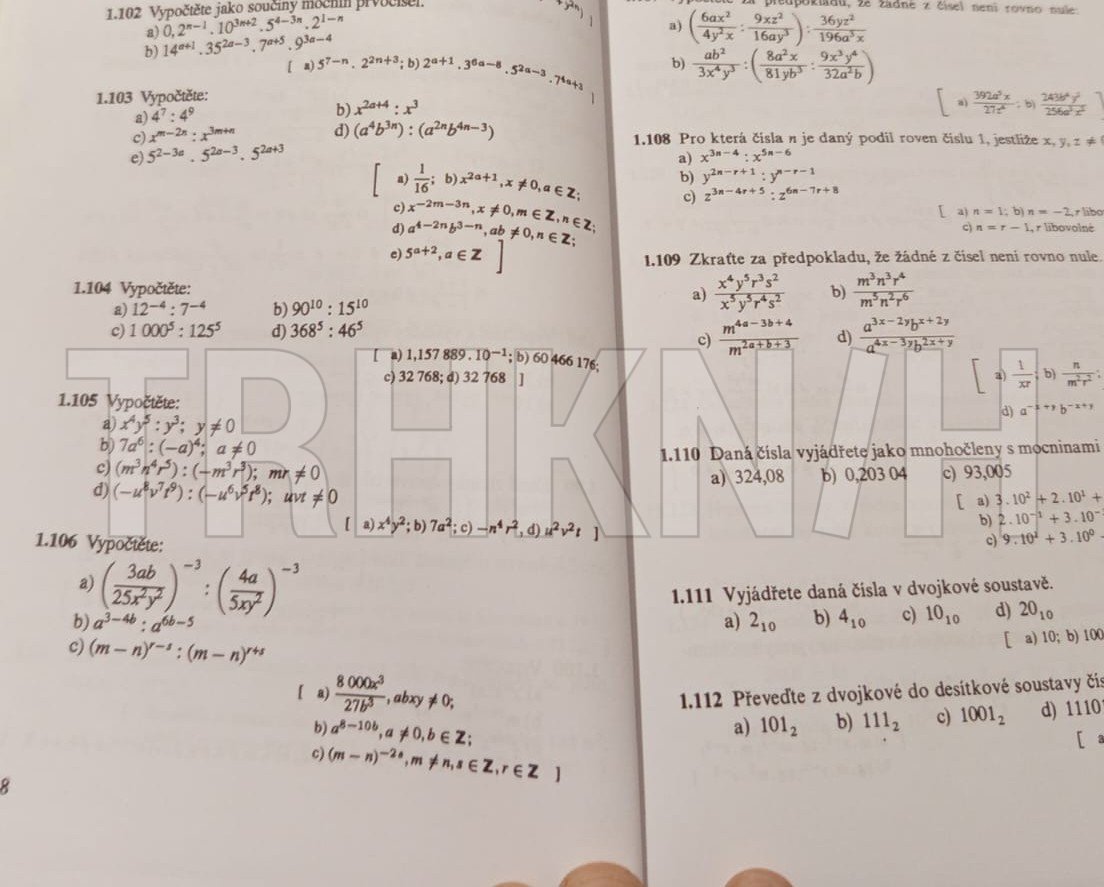 1.102 Vypočtěte jako součiny mocnin prvočísel.
a) 0,2ⁿ⁻¹ . 10³ⁿ⁺² . 5⁴⁻³ⁿ . 2¹⁻ⁿ
b) 14ᵃ⁺¹ . 35²ᵃ⁻³ . 7ᵃ⁺⁵ . 9³ᵃ⁻⁴
[ a) 5⁷⁻ⁿ . 2²ⁿ⁺³; b) 2ᵃ⁺¹ . 3⁶ᵃ⁻⁸ . 5²ᵃ⁻³ . 7⁴ᵃ⁺³ ]
1.103 Vypočtěte:
a) 4⁷ : 4⁹ b) x²ᵃ⁺⁴ : x³
c) xᵐ⁻²ⁿ : x³ᵐ⁺ⁿ d) (a⁴b³ⁿ) : (a²ⁿb⁴ⁿ⁻³)
e) 5²⁻³ᵃ . 5²ᵃ⁻³ . 5²ᵃ⁺³
[ a) 1/16; b) x²ᵃ⁺¹, x ≠ 0, a ∈ Z;
c) x⁻²ᵐ⁻³ⁿ, x ≠ 0, m ∈ Z, n ∈ Z;
d) a⁴⁻²ⁿb³⁻ⁿ, ab ≠ 0, n ∈ Z;
e) 5ᵃ⁺², a ∈ Z ]
1.104 Vypočtěte:
a) 12⁻⁴ : 7⁻⁴ b) 90¹⁰ : 15¹⁰
c) 1 000⁵ : 125⁵ d) 368⁵ : 46⁵
[ a) 1,157 889 . 10⁻¹; b) 60 466 176;
c) 32 768; d) 32 768 ]
1.105 Vypočtěte:
a) x⁴y⁵ : y³; y ≠ 0
b) 7a⁶ : (−a)⁴; a ≠ 0
c) (m³n⁴r⁵) : (−m³r³); mr ≠ 0
d) (−u⁸v⁷t⁹) : (−u⁶v⁵t⁸); uvt ≠ 0
[ a) x⁴y²; b) 7a²; c) −n⁴r², d) u²v²t ]
1.106 Vypočtěte:
a) (3ab/25x²y²)⁻³ : (4a/5xy²)⁻³
b) a³⁻⁴ᵇ : a⁶ᵇ⁻⁵
c) (m − n)ʳ⁻ˢ : (m − n)ʳ⁺ˢ
[ a) 8 000x³/27b³, abxy ≠ 0;
b) a⁸⁻¹⁰ᵇ, a ≠ 0, b ∈ Z;
c) (m − n)⁻²ˢ, m ≠ n, s ∈ Z, r ∈ Z ]
8
předpokladu, že žádné z čísel není rovno nule:
a) (6ax²/4y²x : 9xz²/16ay³) : 36yz²/196a³x
b) ab²/3x⁴y³ : (8a²x/81yb³ : 9x³y⁴/32a²b)
[ a) 392a⁵x/27z⁴; b) 243b⁴y²/256a³x² ]
1.108 Pro která čísla n je daný podíl roven číslu 1, jestliže x, y, z ≠ 0
a) x³ⁿ⁻⁴ : x⁵ⁿ⁻⁶
b) y²ⁿ⁻ʳ⁺¹ : yⁿ⁻ʳ⁻¹
c) z³ⁿ⁻⁴ʳ⁺⁵ : z⁶ⁿ⁻⁷ʳ⁺⁸
[ a) n = 1; b) n = −2, r libo
c) n = r − 1, r libovolné
1.109 Zkraťte za předpokladu, že žádné z čísel není rovno nule.
a) x⁴y⁵r³s²/x⁵y⁵r⁴s² b) m³n³r⁴/m⁵n²r⁶
c) m⁴ᵃ⁻³ᵇ⁺⁴/m²ᵃ⁺ᵇ⁺³ d) a³ˣ⁻²ʸbˣ⁺²ʸ/a⁴ˣ⁻³ʸb²ˣ⁺ʸ
[ a) 1/xr; b) n/m²r²;
d) a⁻ˣ⁺ʸ b⁻ˣ⁺ʸ
1.110 Daná čísla vyjádřete jako mnohočleny s mocninami
a) 324,08 b) 0,203 04 c) 93,005
[ a) 3 . 10² + 2 . 10¹ +
b) 2 . 10⁻¹ + 3 . 10⁻
c) 9 . 10¹ + 3 . 10⁰
1.111 Vyjádřete daná čísla v dvojkové soustavě.
a) 2₁₀ b) 4₁₀ c) 10₁₀ d) 20₁₀
[ a) 10; b) 100
1.112 Převeďte z dvojkové do desítkové soustavy čís
a) 101₂ b) 111₂ c) 1001₂ d) 1110
[ a
TRHKN/H